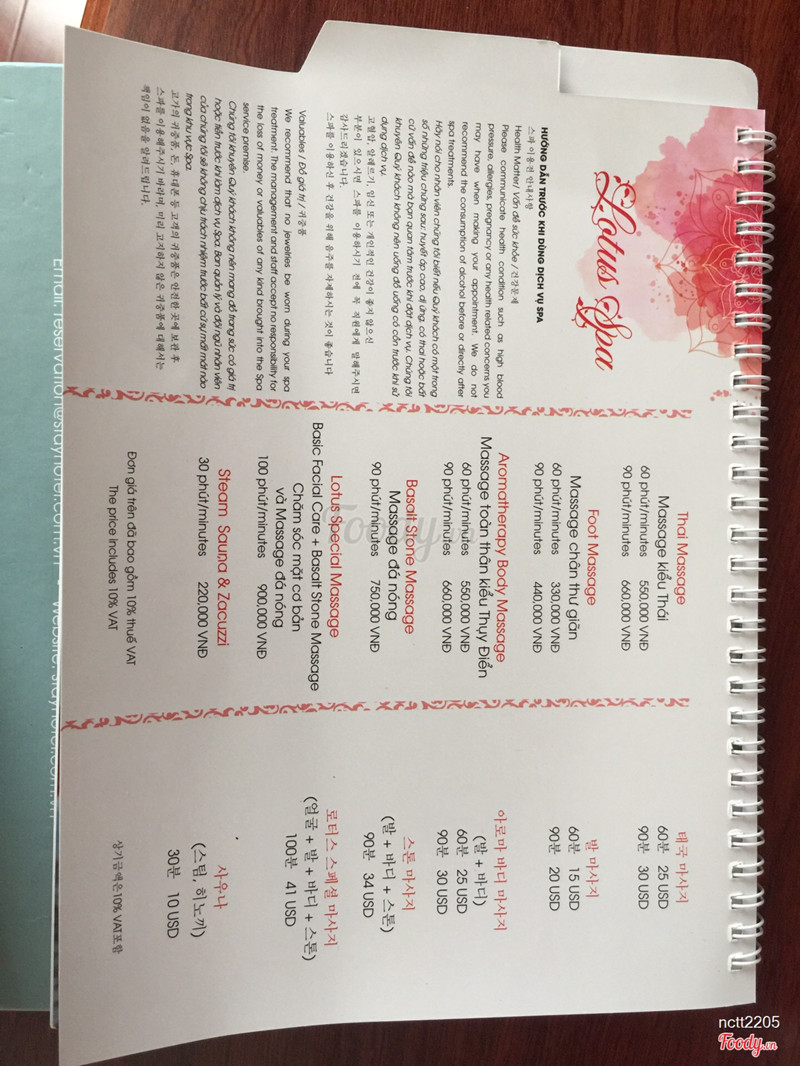 Lotus Spa
HƯỚNG DẪN TRƯỚC KHI DÙNG DỊCH VỤ SPA
스파 이용 전 안내사항
Health Matter/ Vấn đề sức khỏe / 건강문제
Please communicate health condition such as high blood
pressure, allergies, pregnancy or any health related concerns you
may have when making your appointment. We do not
recommend the consumption of alcohol before or directly after
spa treatments.
Hãy nói cho nhân viên chúng tôi biết nếu Quý khách có một trong
số những triệu chứng sau: huyết áp cao, dị ứng, có thai hoặc bất
cứ vấn đề nào mà bạn quan tâm trước khi đặt dịch vụ. Chúng tôi
khuyên Quý khách không nên uống đồ uống có cồn trước khi sử
dụng dịch vụ.
고혈압, 알레르기, 임신 또는 개인적인 건강이 좋지 않으신
부분이 있으시면 스파를 이용하시기 전에 꼭 직원에게 말해주시면
감사드리겠습니다.
스파를 이용하신 후 건강을 위해 음주를 자제하시는 것이 좋습니다
Valuables / Đồ giá trị / 귀중품
We recommend that no jewelries be worn during your spa
treatment. The management and staff accept no responsibility for
the loss of money or valuables of any kind brought into the Spa
service premise.
Chúng tôi khuyên Quý khách không nên mang đồ trang sức có giá trị
hoặc tiền trước khi làm dịch vụ Spa. Ban quản lý và đội ngũ nhân viên
của chúng tôi sẽ không chịu trách nhiệm trước bất cứ sự mất mát nào
trong khu vực Spa.
고가의 귀중품, 돈, 휴대폰 등 고객의 귀중품은 안전한 곳에 보관 후
스파를 이용해주시기 바라며, 미리 고지하지 않은 귀중품에 대해서는
책임이 없음을 알려드립니다.
Thai Massage
Massage kiểu Thái
60 phút/minutes 550,000 VNĐ
90 phút/minutes 660,000 VNĐ
Foot Massage
Massage chân thư giãn
60 phút/minutes 330,000 VNĐ
90 phút/minutes 440,000 VNĐ
Aromatherapy Body Massage
Massage toàn thân kiểu Thụy Điển
60 phút/minutes 550,000 VNĐ
90 phút/minutes 660,000 VNĐ
Basalt Stone Massage
Massage đá nóng
90 phút/minutes 750,000 VNĐ
Lotus Special Massage
Basic Facial Care + Basalt Stone Massage
Chăm sóc mặt cơ bản
và Massage đá nóng
100 phút/minutes 900,000 VNĐ
Steam Sauna & Zacuzzi
30 phút/minutes 220,000 VNĐ
Đơn giá trên đã bao gồm 10% thuế VAT
The price includes 10% VAT
태국 마사지
60분 25 USD
90분 30 USD
발 마사지
60분 15 USD
90분 20 USD
아로마 바디 마사지
(발 + 바디)
60분 25 USD
90분 30 USD
스톤 마사지
(발 + 바디 + 스톤)
90분 34 USD
로터스 스페셜 마사지
(얼굴 + 발 + 바디 + 스톤)
100분 41 USD
사우나
(스팀, 히노끼)
30분 10 USD
상기금액은 10% VAT포함
Email: reservation@stayhotel.com.vn - Website: stayhotel.com.vn
Foody.vn
nctt2205
Foody.vn